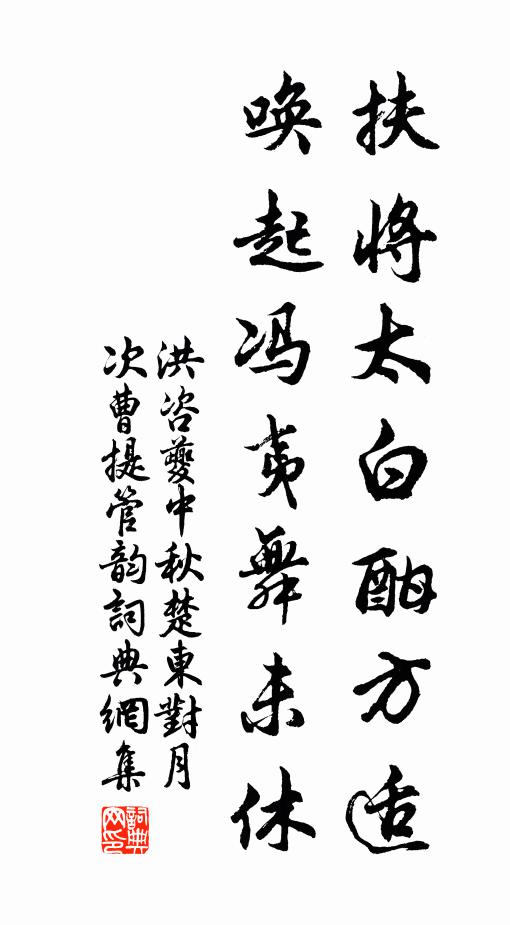 扶将太白酣方适
唤起冯夷舞未休
洪咨夔中秋楚東對月
次曹提管韵詞典網集
詞典网印